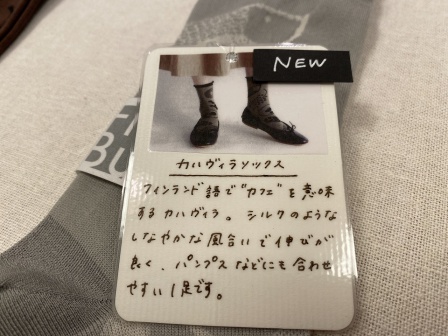 NEW
カハヴィラソックス
フィンランド語で"カフェ"を意味
するカハヴィラ。シルクのような
しなやかな風合いで伸びが
良く、パンプスなどにも合わせ
やすい1足です。